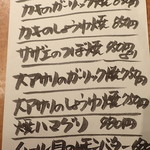 カキのガーリック焼 680円
カキのしょうゆ焼 680円
サザエのつぼ焼 980円
大アサリのガーリック焼 780円
大アサリのしょうゆ焼 780円
焼ハマグリ 980円
ムール貝のレモンバター